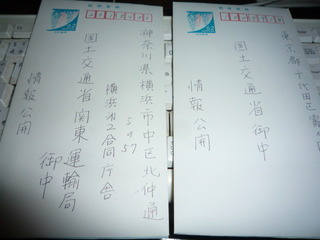 神奈川県横浜市中区北仲通
5の57
横浜第2合同庁舎
国土交通省関東運輸局
御中
情報公開
東京都千代田区霞
国土交通省御中
情報公開